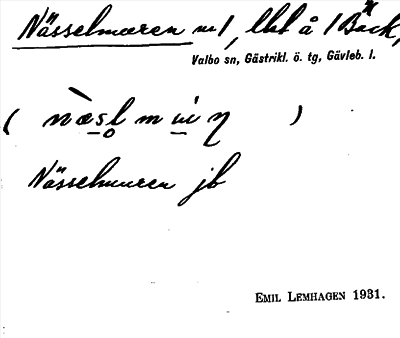 Nässelmaren m/, lbl å /Bäck,
Valbo sn, Gästrikl. ö. tg, Gävleb. l.
Nässelmuren jb
EMIL LEMHAGEN 1931.